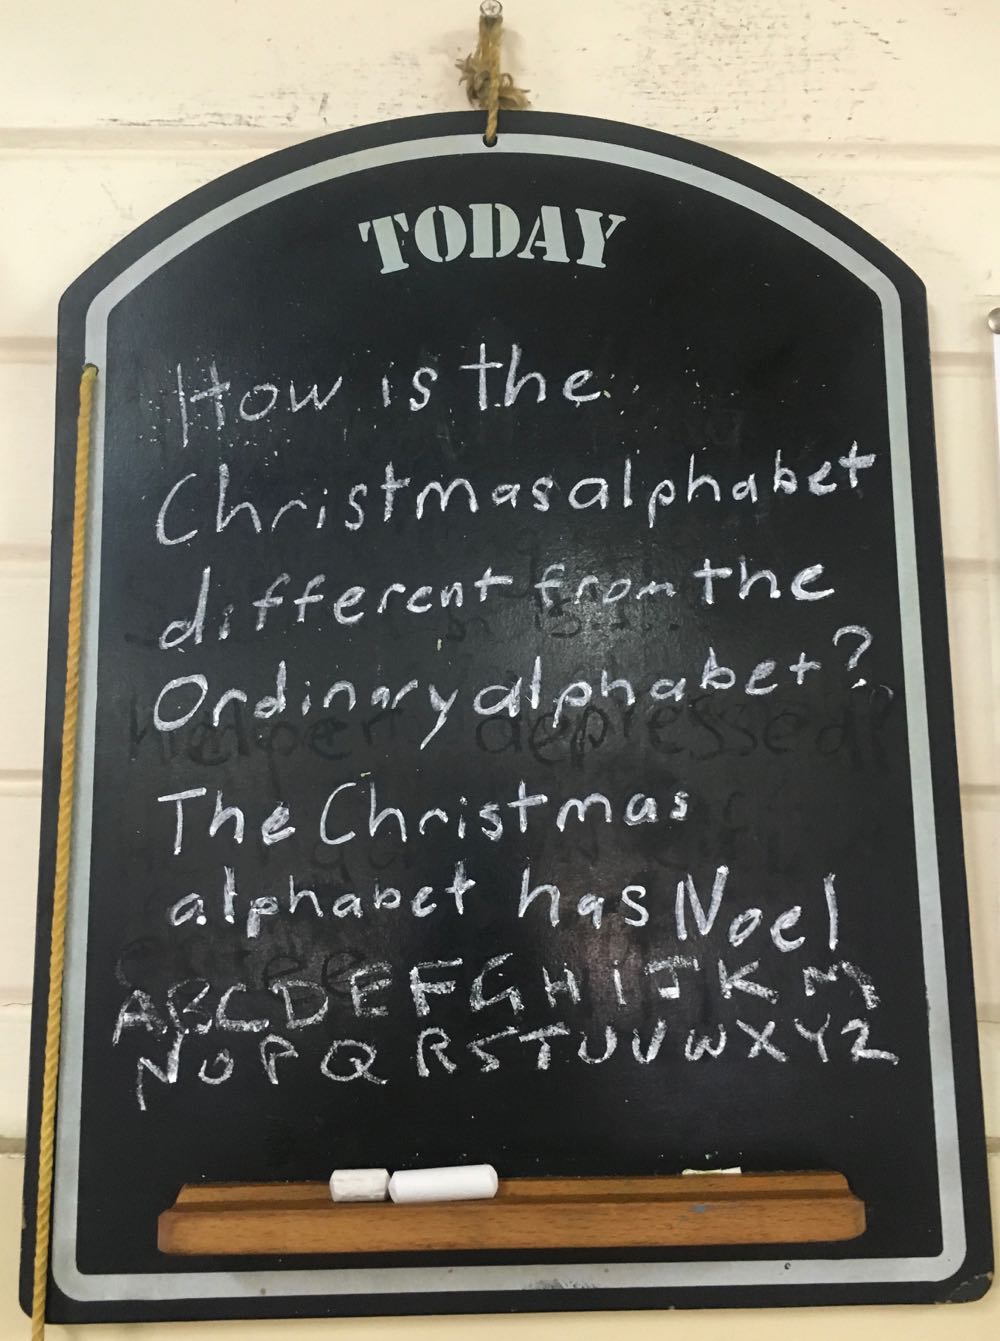 TODAY
How is the
Christmas alphabet
different from the
Ordinary alphabet?
The Christmas
alphabet has Noel
ABCDEFGHiJKM
NOPQRSTUVWXYZ